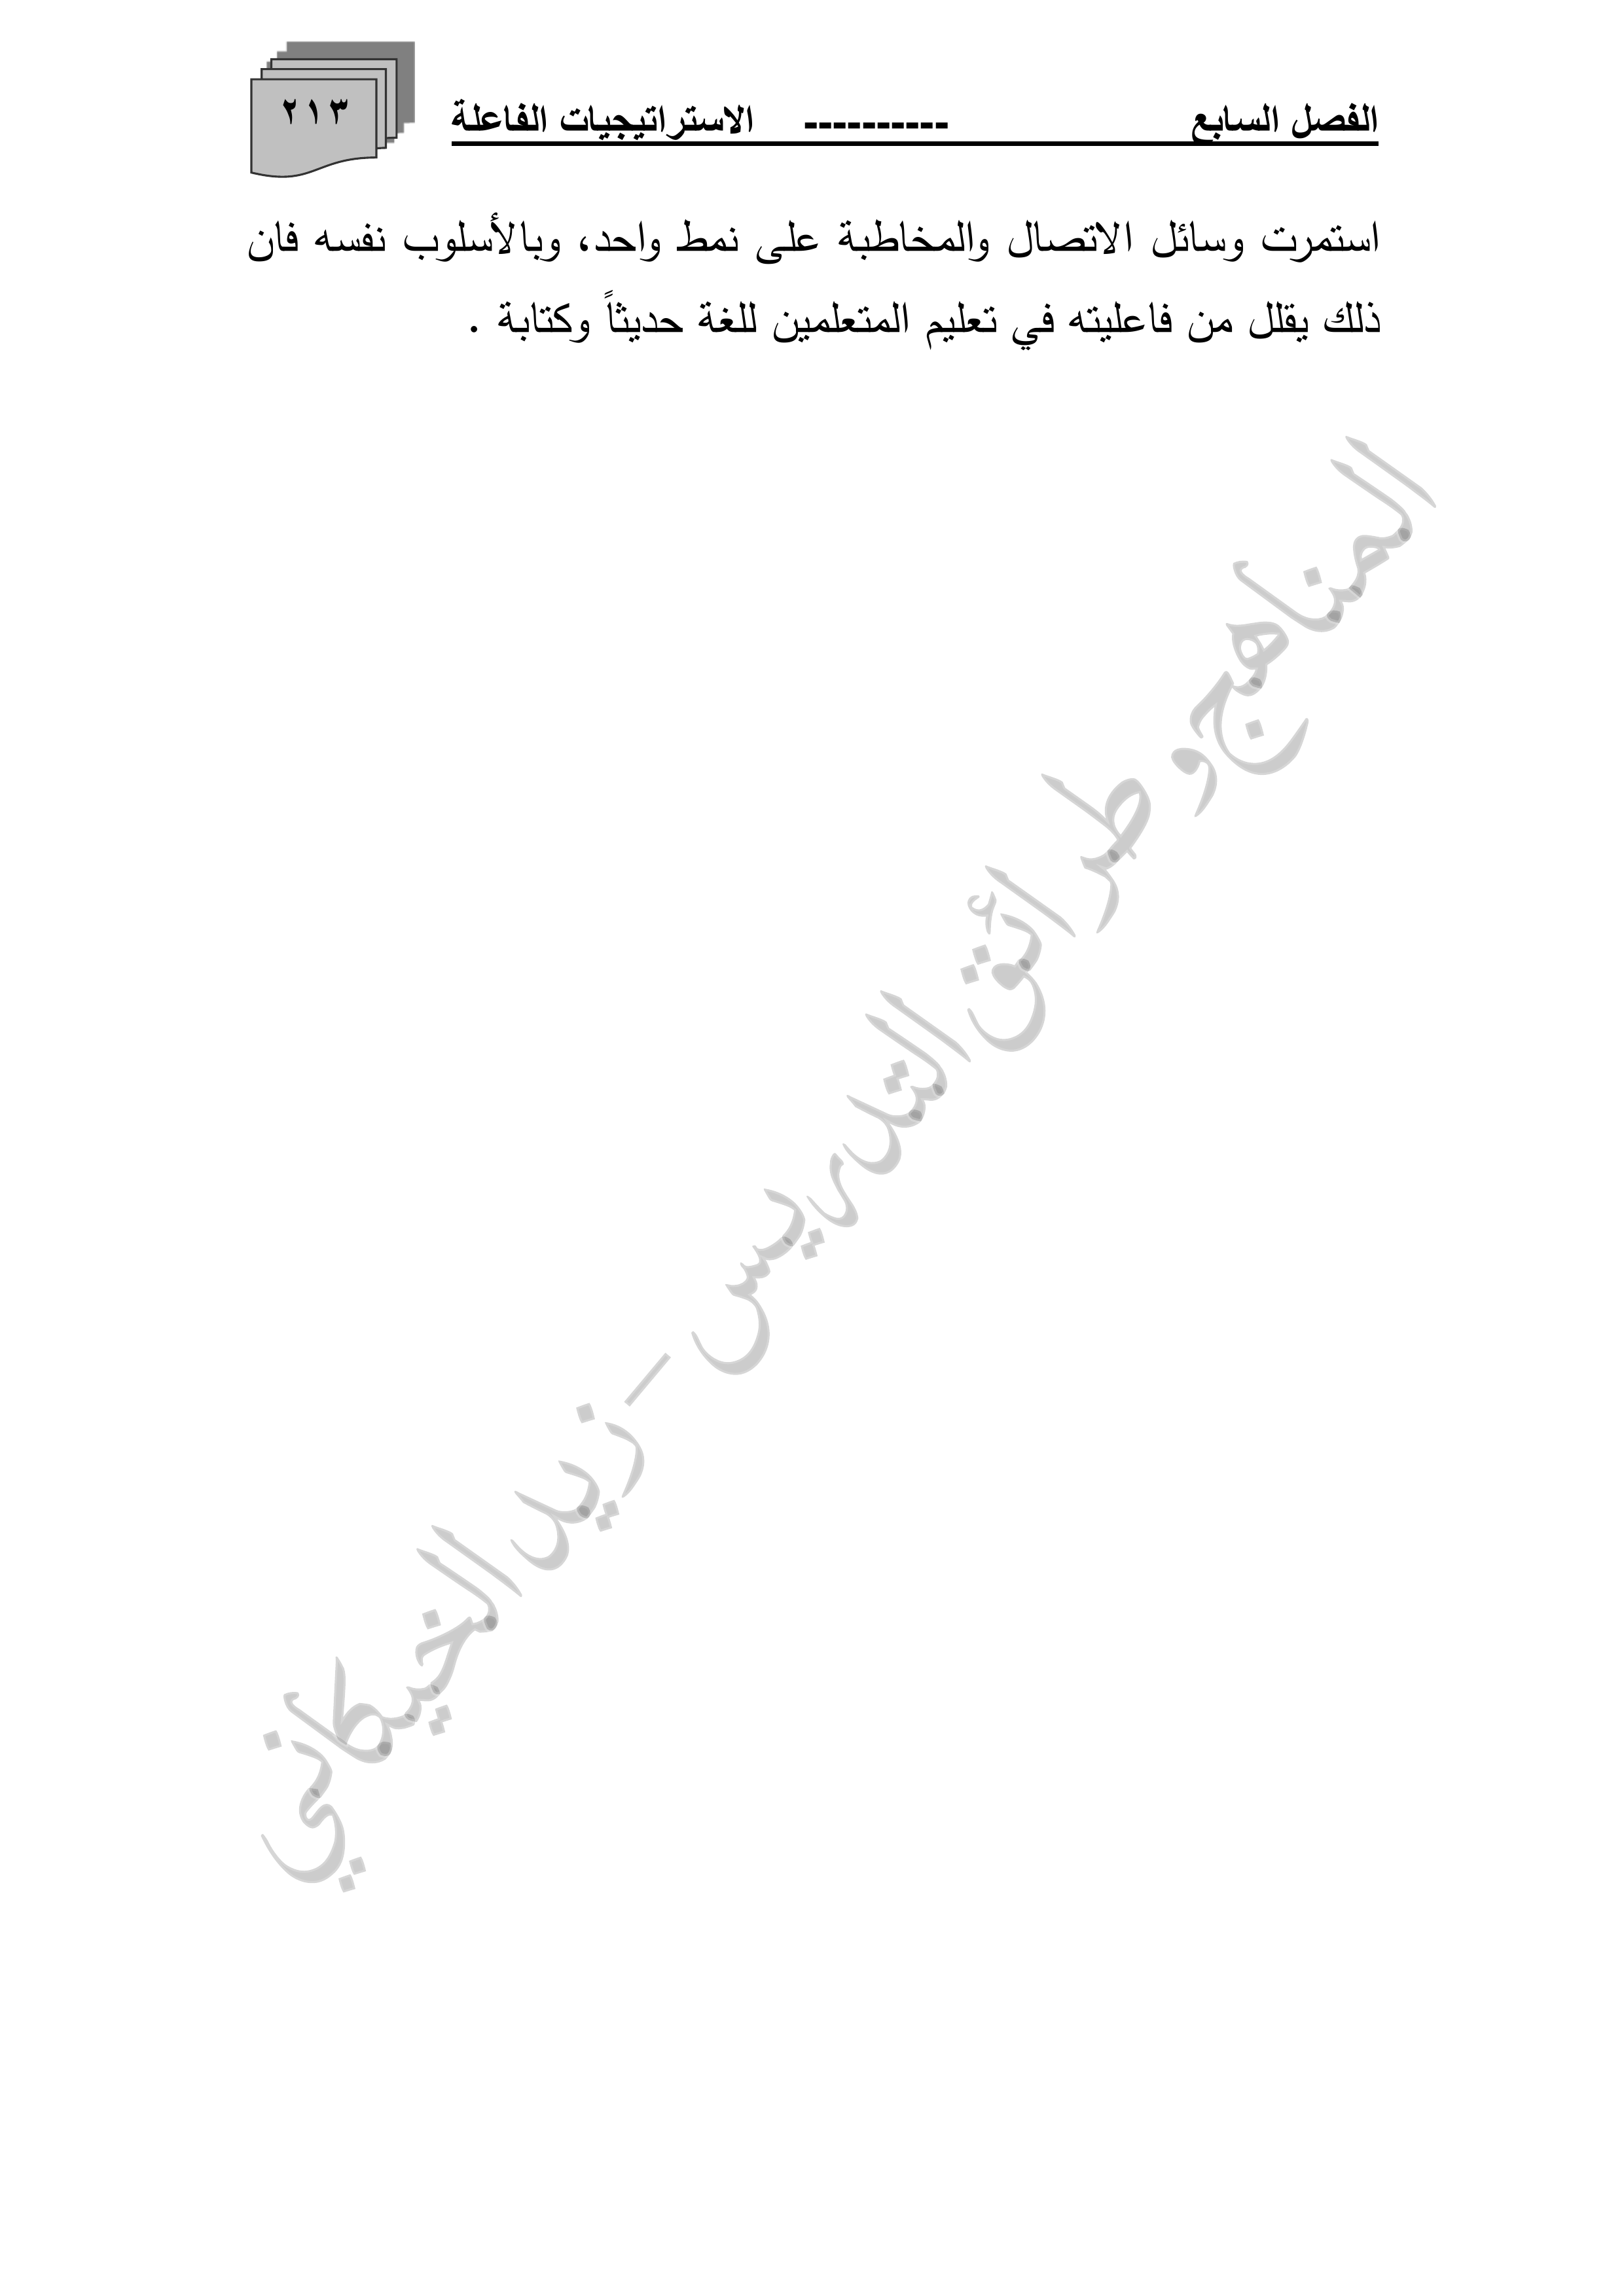 الفصل السابع ---------- الاستراتيجيات الفاعلة ٢١٣
استمرت وسائل الاتصال والمخاطبة على نمط واحد، وبالأسلوب نفسه فان
ذلك يقلل من فاعليته في تعليم المتعلمين للغة حديثاً وكتابة .
المناهج و طرائق التدريس - زيد الخيكاني